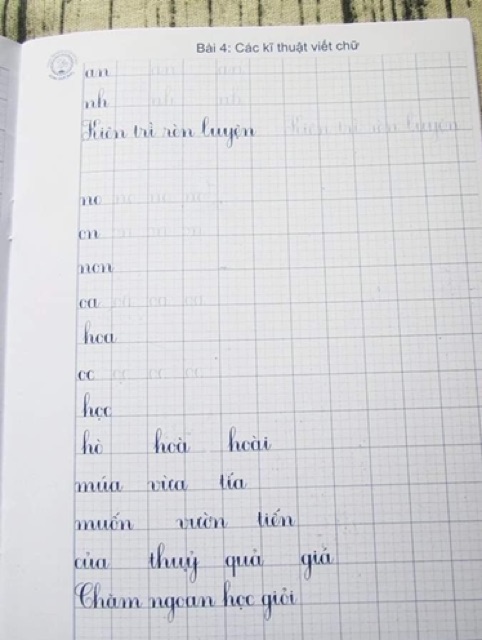 Bài 4: Các kĩ thuật viết chữ
an an an
nh nh nh
Kiên trì rèn luyện Kiên trì rèn luyện
no no no no
on
non
ca ca ca ca
hoa
oc oc oc oc
học
hò hoà hoài
múa vừa tía
muốn vườn tiến
của thuỷ quả giá
Chăm ngoan học giỏi